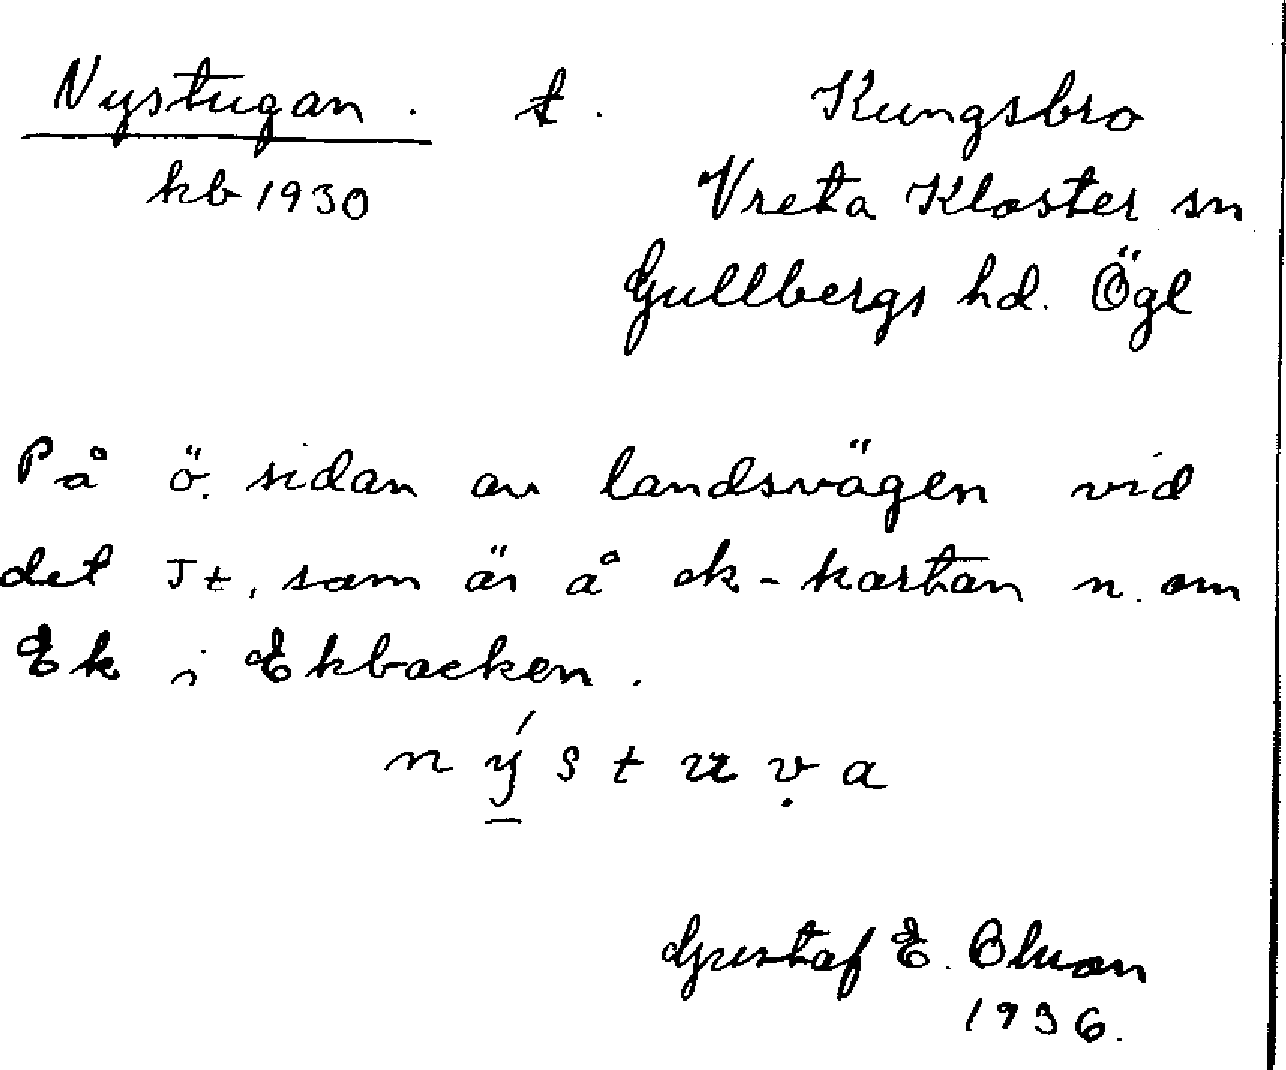 Nystugan. t. Kungsbro
kb 1930 Vreta Kloster sn
Gullbergs hd. Ögl
På ö. sidan av landsvägen vid
det Jt, som är å ek-kartan n. om
Ek i Ekbacken.
n ý s t u ṿ a
Gustaf E.
1936.